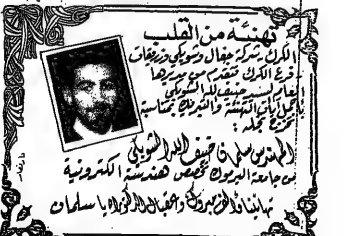 تهنئة من القلب
الكرك - شركة جفال وشويكي وزريقات
فرع الكرك تتقدم من مديرها
السيد ضيف الله الشويكي
التهنئة والتبريك بمناسبة
تخرج نجله :
المهندس سلمان ضيف الله الشويكي
من جامعة اليرموك تخصص هندسة الكترونية
تهانينا وألف مبروك وعقبال الدكتوراه يا سلمان